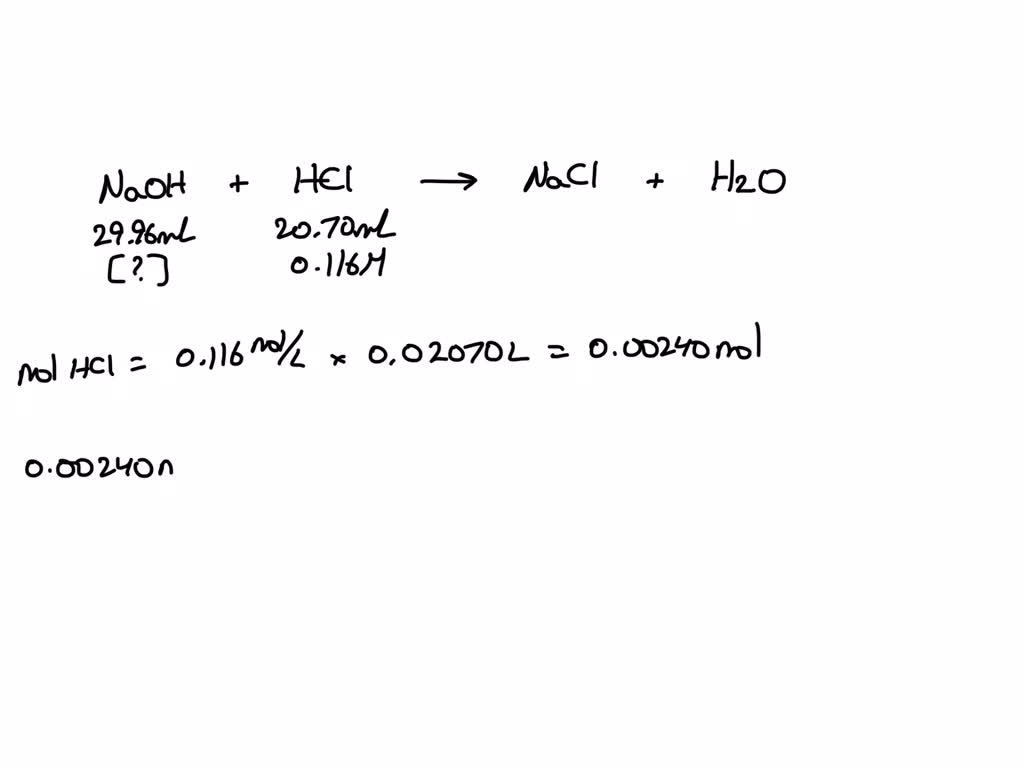 NaOH + HCl → NaCl + H2O
29.96mL 20.70mL
[?] 0.116M
mol HCl = 0.116 mol/L × 0.02070L = 0.00240mol
0.00240n